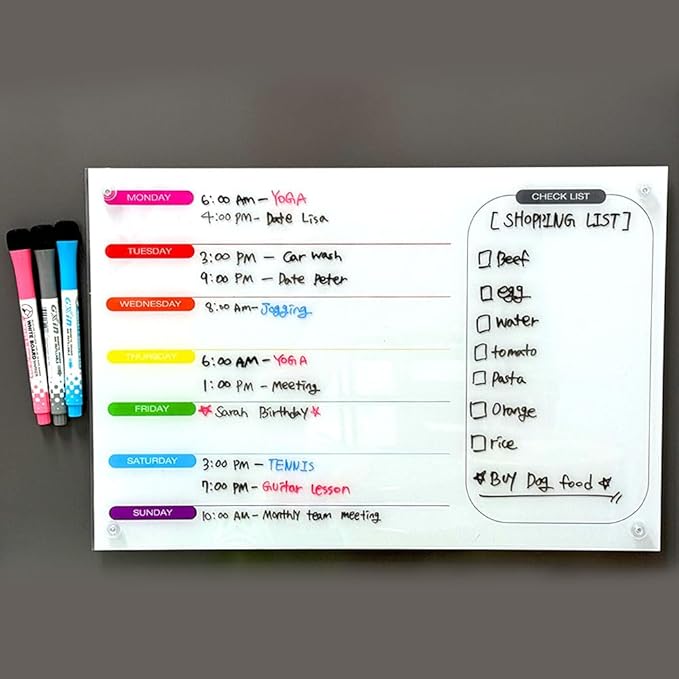 MONDAY
6:00 AM - YOGA
4:00 PM - Date Lisa
TUESDAY
3:00 PM - Car wash
9:00 PM - Date Peter
WEDNESDAY
8:00 AM - Jogging
THURSDAY
6:00 AM - YOGA
1:00 PM - Meeting
FRIDAY
Sarah Birthday
SATURDAY
3:00 PM - TENNIS
7:00 PM - Guitar Lesson
SUNDAY
10:00 AM - Monthly team meeting
CHECK LIST
[SHOPPING LIST]
Beef
egg
water
tomato
Pasta
Orange
rice
BUY Dog food
WHITE BOARD